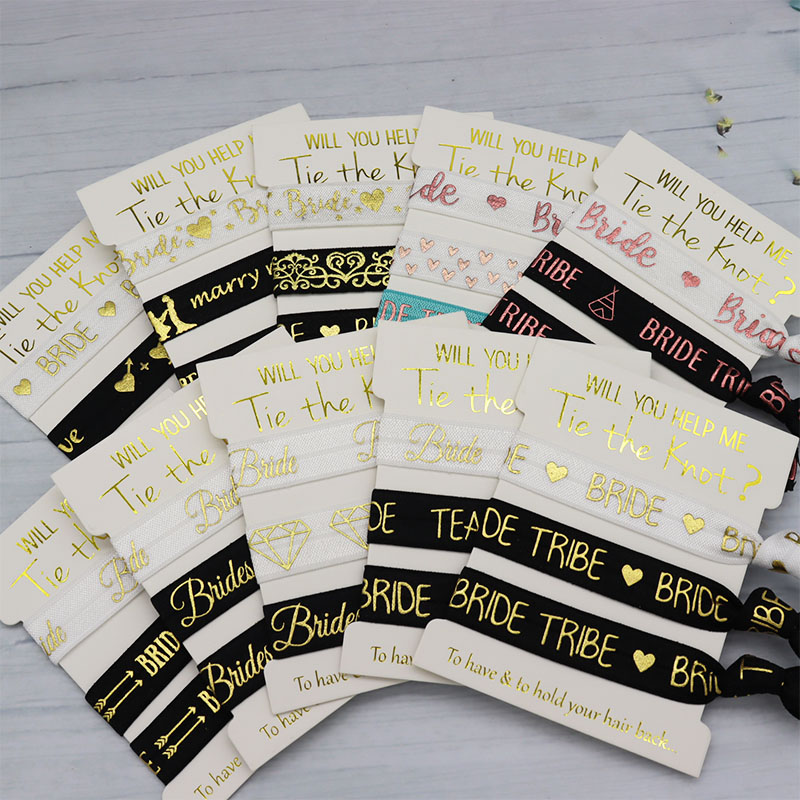 WILL YOU HELP ME
Tie the Knot
BRIDE
WILL YOU HELP ME
Tie the Kno
Bride Brid
marry
WILL YOU HELP
Tie the
Bride
WILL YOU HELP ME
Tie the Knot
Bride
DE TRIBE
WILL YOU HELP ME
Tie the Knot?
Bride Bride
TRIBE BRIDE TRIBE
TRIBE BRIDE TRIBE
WILL YOU HELP
Tie the
Bride
BRIDE
To have
WILL YOU HELP
Tie the
Bride
Brides
Brides
To have
WILL YOU HELP
Tie the
Bride
Brides
To have &
WILL YOU HELP
Tie the
Bride
DE TEA
BRIDE
To have
WILL YOU HELP ME
Tie the Knot?
DE BRIDE BRI
DE TRIBE BRIDE TRIBE
BRIDE TRIBE BRID
To have & to hold your hair back..